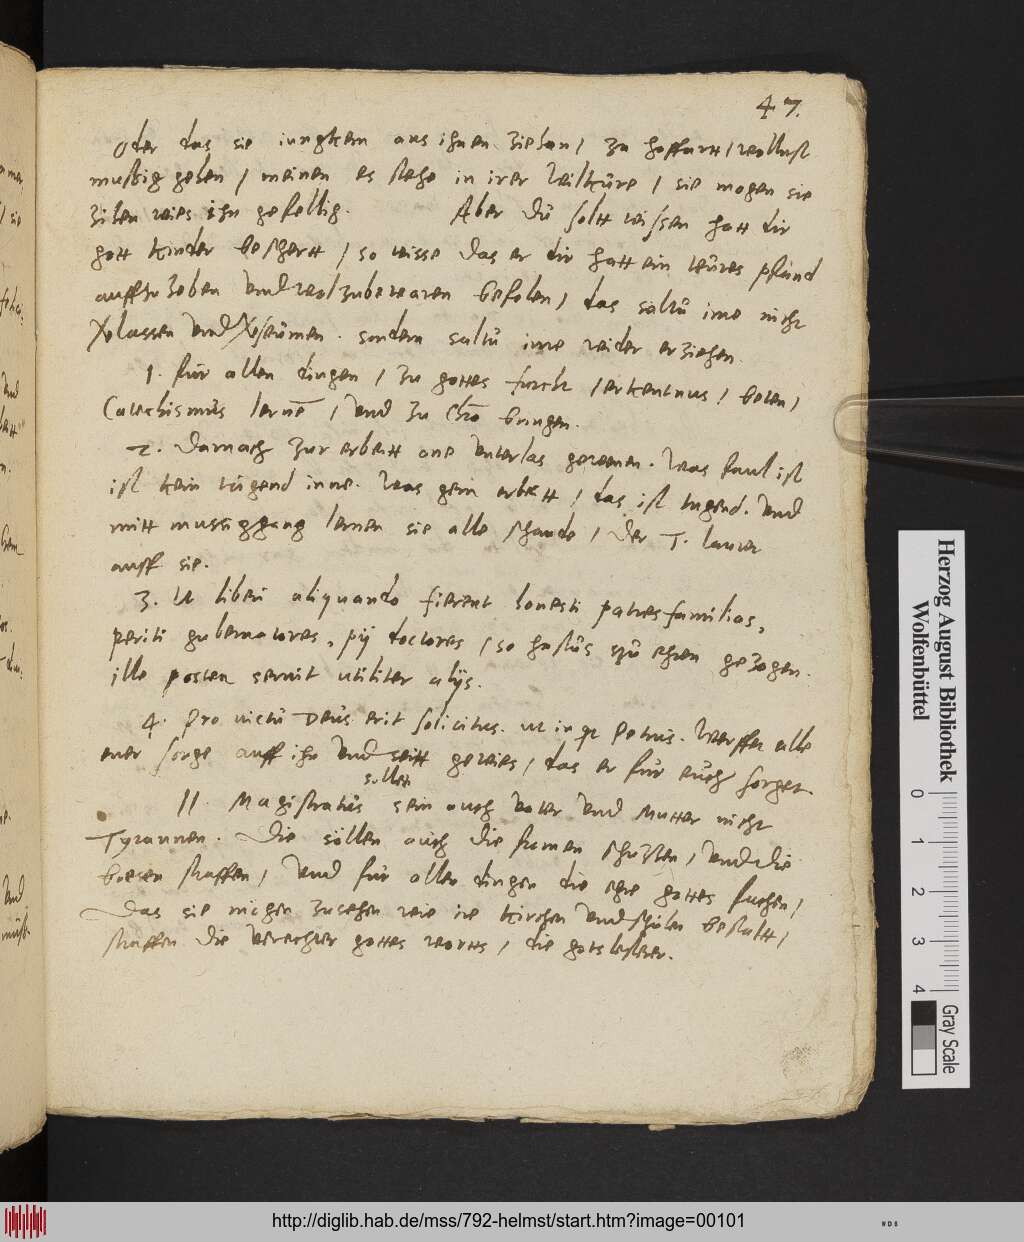 47.
Oder das sie iungkern aus ihnen ziehen / zu hoffartt / wollust
mussig gehen / meinen es stehe in irer wilkure / sie mogen sie
zihen wies ihn gefellig. Aber du soltt wissen hatt dir
gott kinder beschertt / so wisse das er dir hatt ein teures pfand
auffzuheben und wol zubewaren befolen / das saltu ime nicht
lassen und seumen. sondern saltu ime wider erziehen
1. fur allen dingen / zu gottes furcht / erkentnus / beten /
Catechismus lerne / und zu Chro bringen.
2. Darnach zur erbeitt one unterlas gewenen. Was faul ist
ist kein tugend inne. Was gern erbeitt / das ist tugend. Und
mitt mussiggang lernen sie alle schande / Der T. lauret
auff sie.
3. Ut liberi aliquando fierent honesti patresfamilias,
periti gubernatores, pij doctores / so hastus zu ehren gezogen.
ille postea servit utiliter alijs.
4. Pro victu Deus erit solicitus. ut inqt Petrus. Werffet alle
euer sorge auff ihn und seitt gewies / das er fur euch sorget.
sollen
II. Magistratus sein auch vater und mutter nicht
Tyrannen. Die sollen auch die fromen schutzen / und die
boesen straffen / und fur allen dingen die ehre gottes suchen /
Das sie mogen zusehen wie ire kirchen und schulen bestaltt /
straffen die verechter gottes wortts / die gotslesterer.
Herzog August Bibliothek
Wolfenbüttel
0 1 2 3 4
Gray Scale
http://diglib.hab.de/mss/792-helmst/start.htm?image=00101